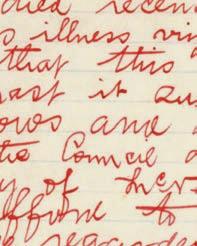 died recen
s illness vi
that this
ast it su
ows and
the Council
y of her
afford to
regarded